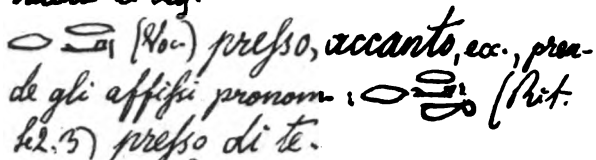 (Voc.) presso, accanto, ecc., pren-
de gli affissi pronom. : (Rit.
presso di te.